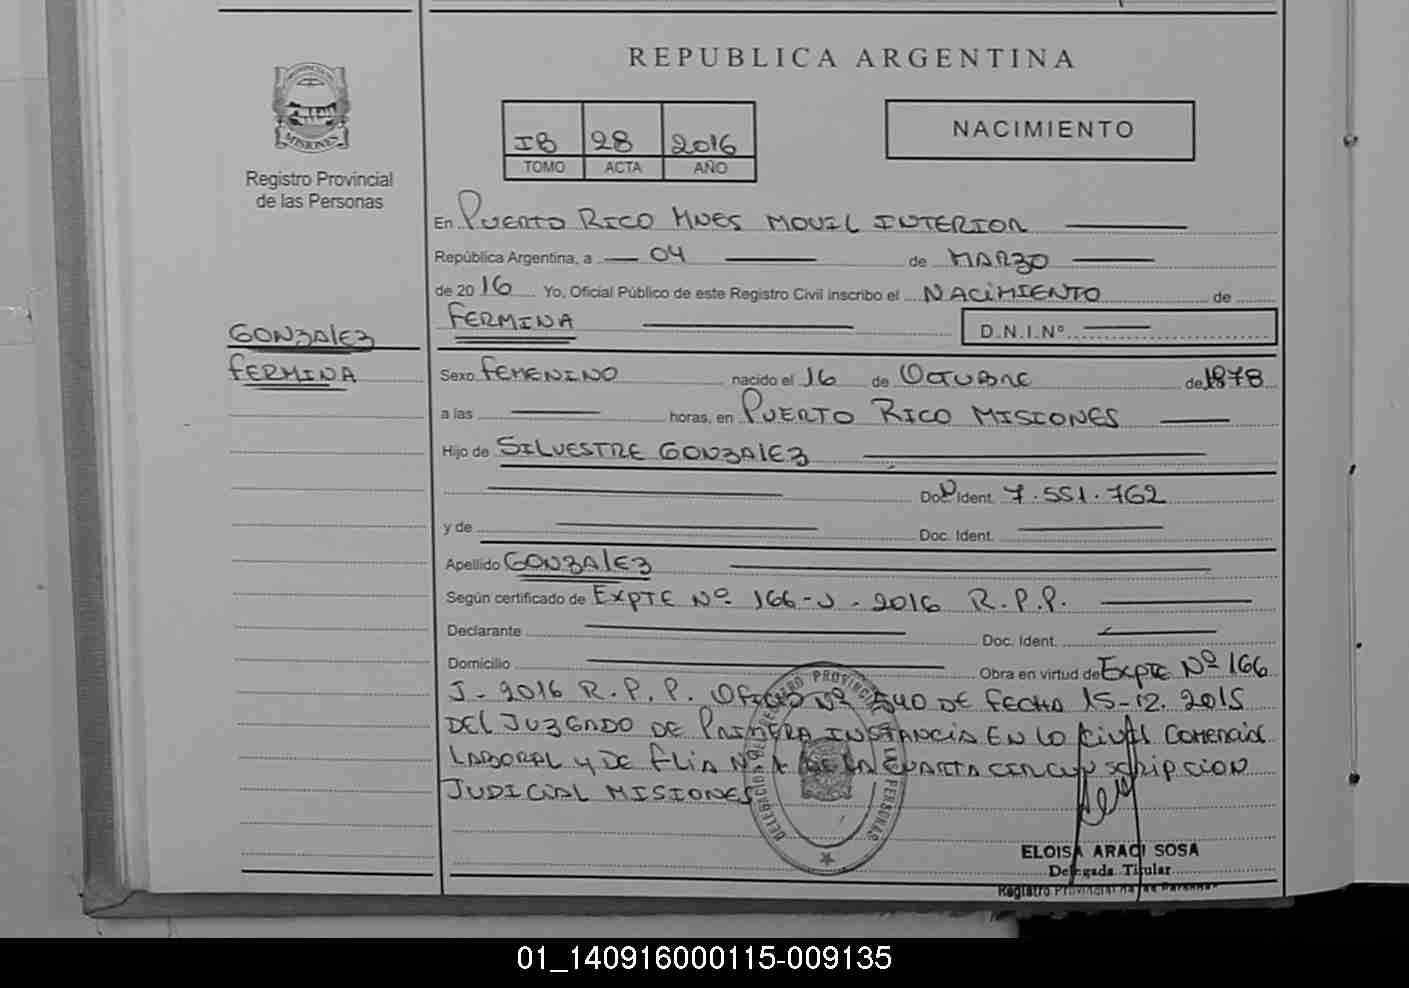 REPUBLICA ARGENTINA
MISIONES
Registro Provincial
de las Personas
IB 28 2016
TOMO ACTA AÑO
NACIMIENTO
En PUERTO RICO MNES MOVIL INTERIOR
República Argentina, a 04 de MARZO
de 2016 Yo, Oficial Público de este Registro Civil inscribo el NACIMIENTO de
FERMINA D.N.I.Nº
GONZALEZ
FERMINA
Sexo FEMENINO nacido el 16 de OCTUBRE de 1878
a las horas, en PUERTO RICO MISIONES
Hijo de SILVESTRE GONZALEZ
Doc. Ident. 7.551.762
y de Doc. Ident.
Apellido GONZALEZ
Según certificado de EXPTE Nº 166-J-2016 R.P.P.
Declarante Doc. Ident.
Domicilio Obra en virtud de EXPTE Nº 166
J-2016 R.P.P. OFICIO Nº 540 DE FECHA 15-12.2015
DEL JUZGADO DE PRIMERA INSTANCIA EN LO CIVIL COMERCIAL
LABORAL Y DE FLIA Nº 1 DE LA CUARTA CIRCUNSCRIPCION
JUDICIAL MISIONES
ELOISA ARACI SOSA
Delegada Titular
Registro Provincial de las Personas
01_140916000115-009135